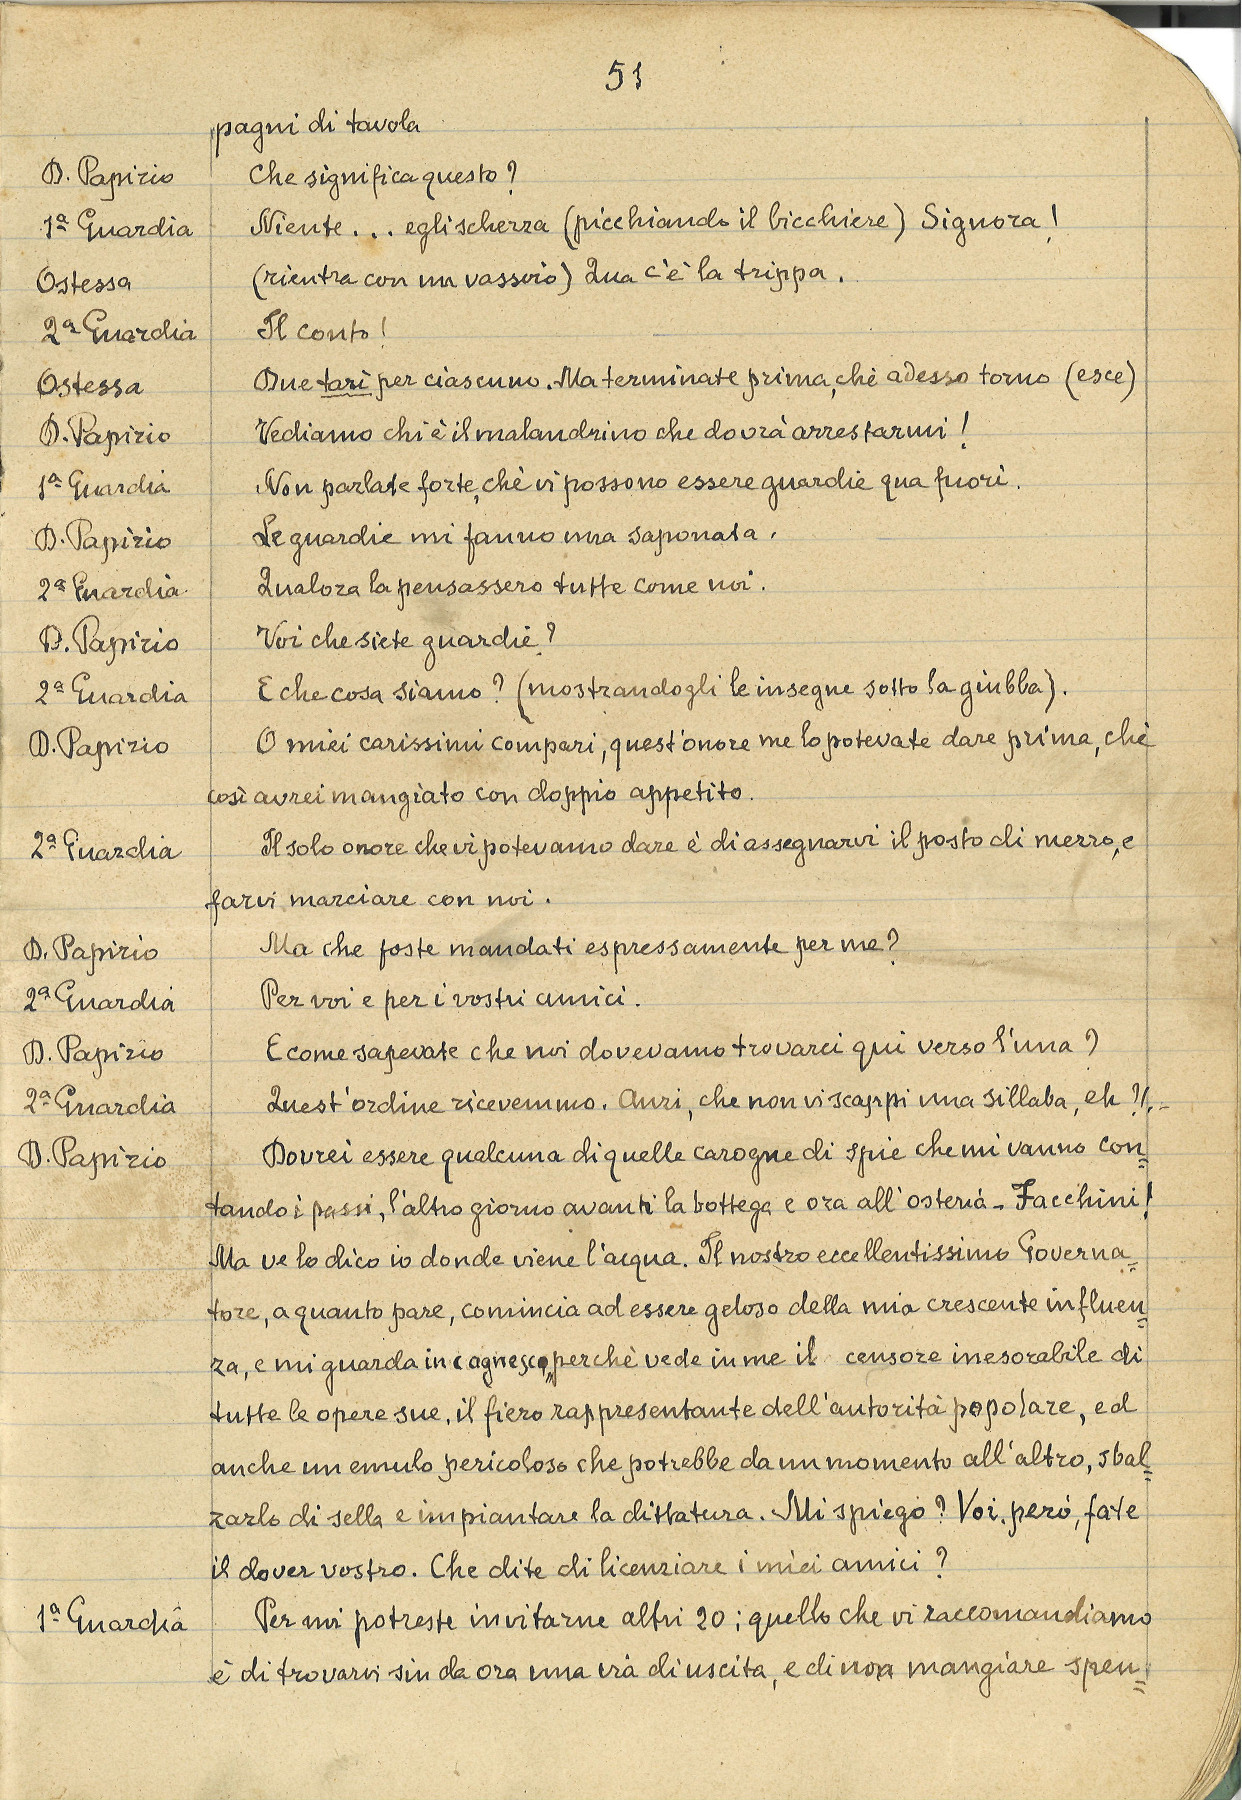 51
pagni di tavola
D. Papirio Che significa questo?
1ª Guardia Niente... egli scherza (picchiando il bicchiere) Signora!
Ostessa (rientra con un vassoio) Qua c'è la trippa.
2ª Guardia Il conto!
Ostessa Due tarì per ciascuno. Ma terminate prima, chè adesso torno (esce)
D. Papirio Vediamo chi è il malandrino che dovrà arrestarmi!
1ª Guardia Non parlate forte, chè vi possono essere guardie qua fuori.
D. Papirio Le guardie mi fanno una saponata.
2ª Guardia Qualora la pensassero tutte come noi.
D. Papirio Voi che siete guardie?
2ª Guardia E che cosa siamo? (mostrandogli le insegne sotto la giubba).
D. Papirio O miei carissimi compari, quest'onore me lo potevate dare prima, chè
così avrei mangiato con doppio appetito.
2ª Guardia Il solo onore che vi potevamo dare è di assegnarvi il posto di mezzo, e
farvi marciare con noi.
D. Papirio Ma che foste mandati espressamente per me?
2ª Guardia Per voi e per i vostri amici.
D. Papirio E come sapevate che noi dovevamo trovarci qui verso l'una?
2ª Guardia Quest'ordine ricevemmo. Anzi, che non vi scappi una sillaba, eh?!.
D. Papirio Dovrei essere qualcuna di quelle carogne di spie che mi vanno con=
tando i passi, l'altro giorno avanti la bottega e ora all'osteria - Facchini!
Ma ve lo dico io donde viene l'acqua. Il nostro eccellentissimo Governa=
tore, a quanto pare, comincia ad essere geloso della mia crescente influen=
za, e mi guarda in cagnesco, perchè vede in me il censore inesorabile di
tutte le opere sue, il fiero rappresentante dell'autorità popolare, ed
anche un emulo pericoloso che potrebbe da un momento all'altro, sbal=
zarlo di sella e impiantare la dittatura. Mi spiego? Voi, però, fate
il dover vostro. Che dite di licenziare i miei amici?
1ª Guardia Per noi potreste invitarne altri 20; quello che vi raccomandiamo
è di trovarvi sin da ora una via di uscita, e di non mangiare spen=